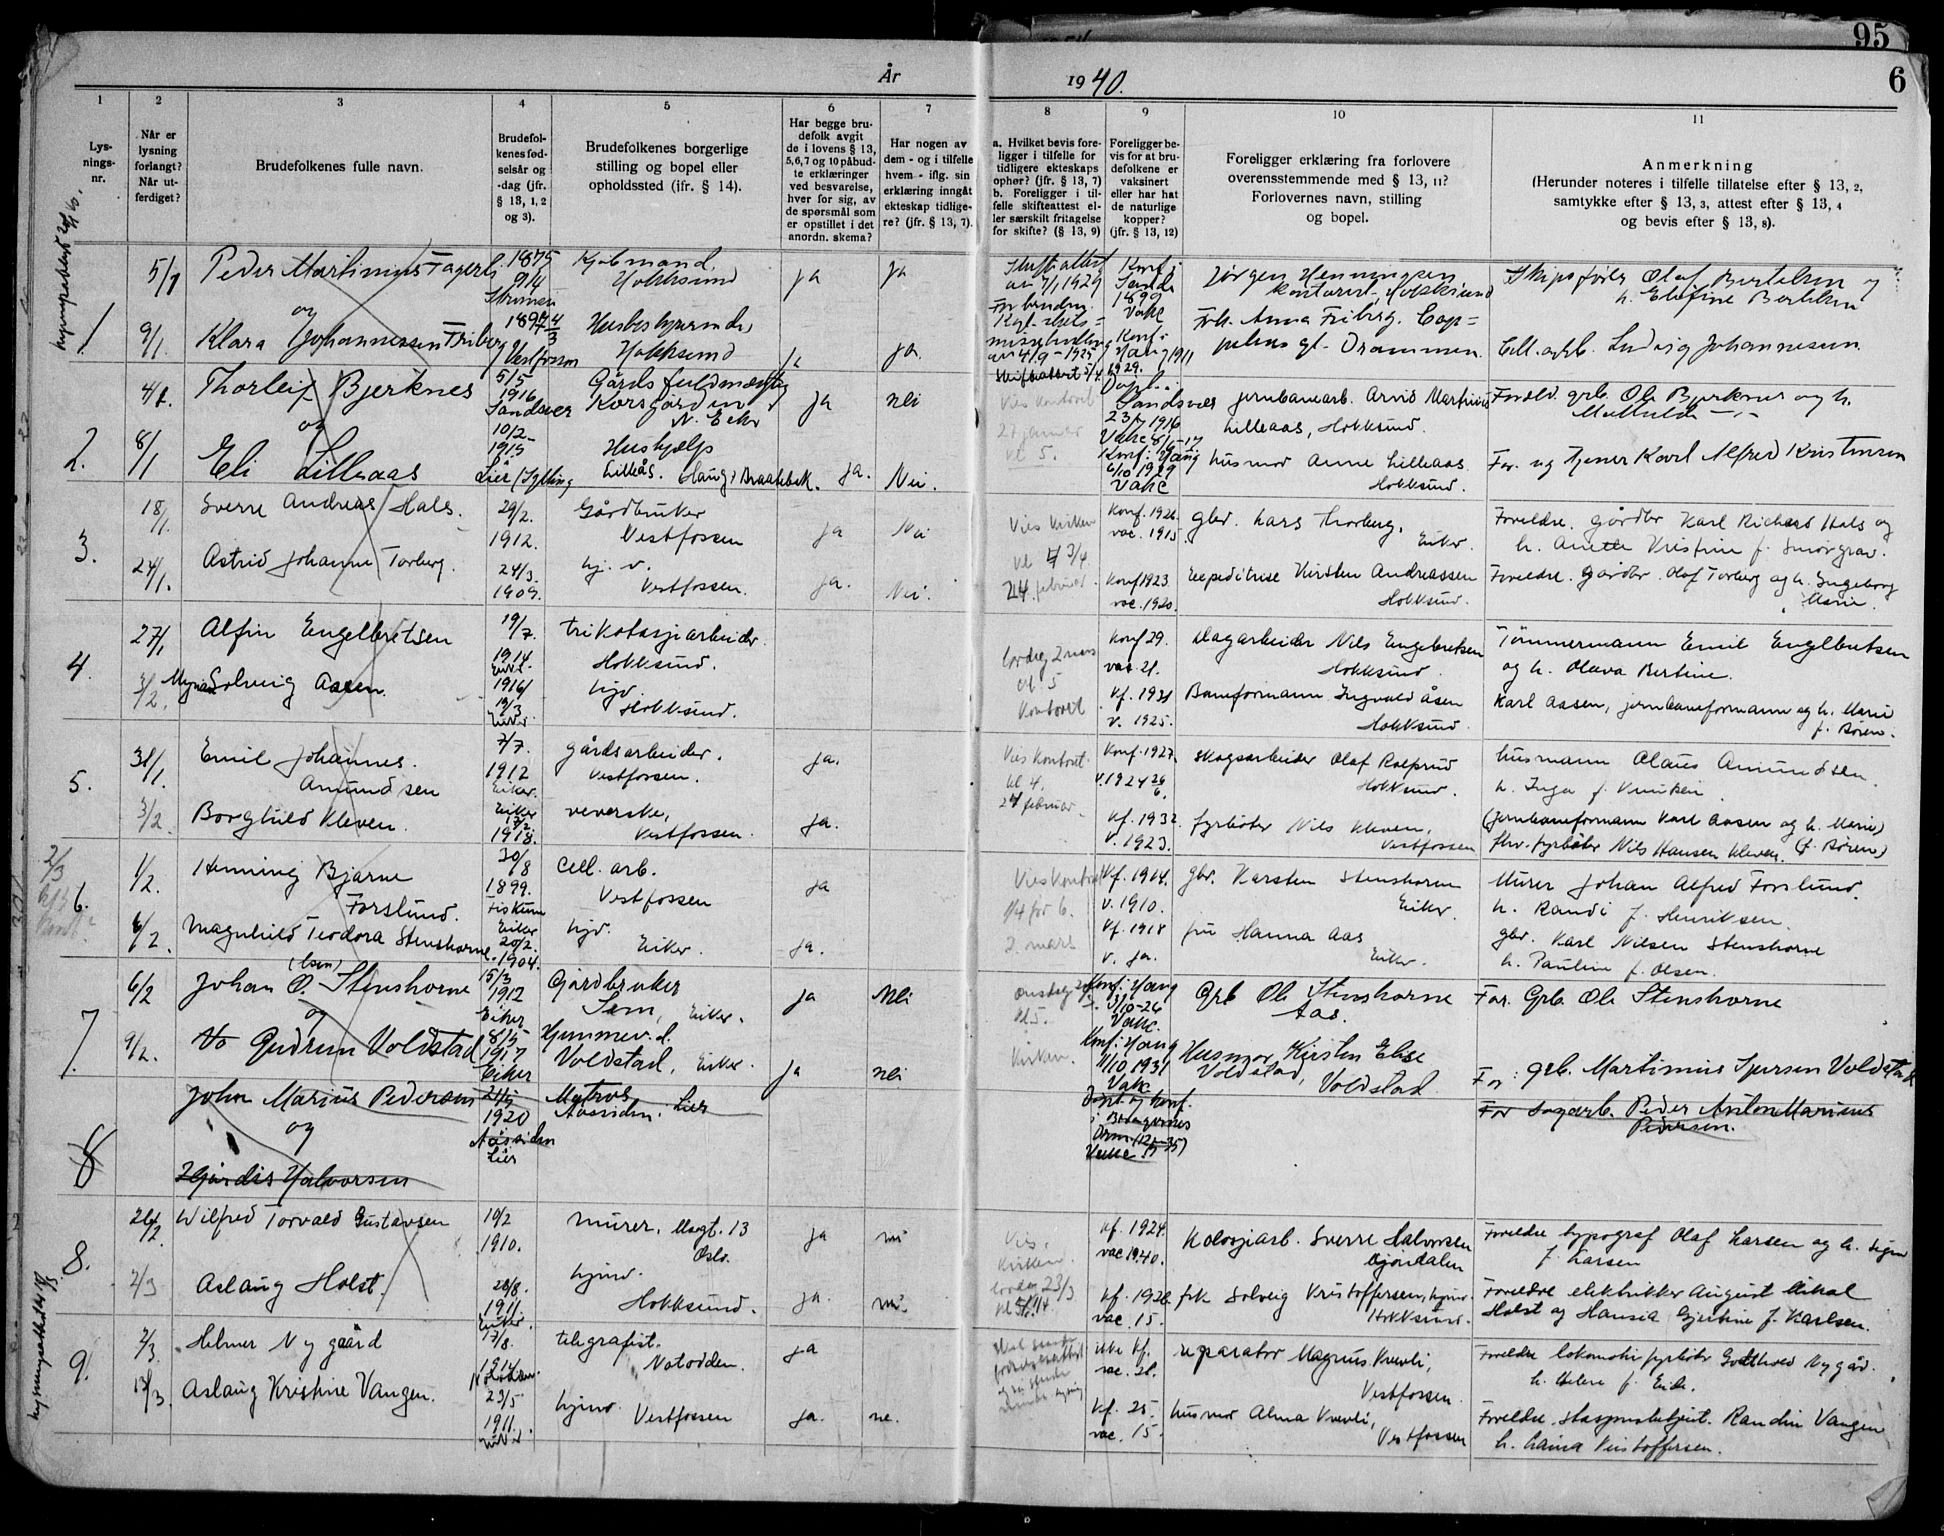 95
6
År
19 40.
1
2
3
4
5
6
7
8
9
10
11
Lys-
nings-
nr.
Når er
lysning
forlangt?
Når ut-
ferdiget?
Brudefolkenes fulle navn.
Brudefol-
kenes fød-
selsår og
-dag (jfr.
§ 13, 1, 2
og 3).
Brudefolkenes borgerlige
stilling og bopel eller
opholdssted (ifr. § 14).
Har begge bru-
defolk avgit
de i lovens § 13,
5,6,7 og 10 påbud-
te erklæringer
ved besvarelse,
hver for sig, av
de spørsmål som
er opstillet i det
anordn. skema?
Har nogen av
dem - og i tilfelle
hvem - iflg. sin
erklæring inngått
ekteskap tidlige-
re? (jfr. § 13, 7).
a. Hvilket bevis fore-
ligger i tilfelle for
tidligere ekteskaps
ophør? (jfr. § 13, 7)
b. Foreligger i til-
felle skifteattest el-
ler særskilt fritagelse
for skifte? (§ 13, 9)
Foreligger be-
vis for at bru-
defolkene er
vaksinert
eller har hat
de naturlige
kopper?
(jfr. § 13, 12)
Foreligger erklæring fra forlovere
overensstemmende med § 13, 11?
Forlovernes navn, stilling
og bopel.
Anmerkning
(Herunder noteres i tilfelle tillatelse efter § 13, 2,
samtykke efter § 13, 3, attest efter § 13, 4
og bevis efter § 13, 8).
1.
5/1 Peder Martinius Fagerli 1875 9/4 Kjøbmand, Hokksund ja ja
og
9/1. Klara Johannessen Friberg Vestfossen Hokksund ja ja.
Skifteattest av 7/1 1929
Konf. i Sande 1899 Vakc
Jørgen Henningsen
kontorist, Hokksund
Skipsfører Olaf Bertelsen og
h. Elefine Bertelsen
Frk. Anna Friberg. Cap-
pelens gt. Drammen.
Cell. arb. Ludvig Johannessen.
2.
4/1. Thorleif Bjerknes 5/5 1916 Sandsvær Gårdsfuldmægtig Korsgården N. Eiker ja nei
og
8/1 Eli Lilleaas 10/2 1915 Lier/Sylling Hushjelp Lilleås. Haug, Braatebek. ja. Nei.
Vies kontoret
27 januar
kl 5.
Døpt i Sandsvær 23/7 1916
Konf. i Haug 6/10 1929 Vakc
jernbanearb. Arvid Martinius
Lilleaas, Hokksund.
husmor Anne Lilleaas.
Hokksund.
Foreld. grb. Ole Bjerknes og h.
Mathilde
For. ug tjener Karl Alfred Kristensen
3.
18/1. Sverre Andreas Hals. 29/2. 1912. Gårdbruker Vestfossen ja Nei
24/1. Astrid Johanne Torberg. 24/3. 1909. hj. v. Vestfossen. ja. Nei.
Vies kirken
kl 3/4
24 februar.
Konf. 1926. vac. 1915
Konf 1923. vac. 1920.
gbr. Lars Thorberg, Eiker.
Expeditrise Kirsten Andreassen
Hokksund.
Foreldre. gårdbr Karl Richard Hals og
h. Anette Kristine f. Smørgrav.
Foreldre. Gårdbr. Olaf Torberg og h. Ingeborg
Marie.
4.
27/1 Alfin Engelbretsen 19/7. 1914 Eiker. trikotasjearbeider. Hokksund.
3/2. Solveig Aasen. 1916 19/3 Eiker. hjv Hokksund.
lørdag 2 mars
kl 5
kontoret
Konf 29. vac 21.
Kf. 1931 v. 1925.
Dagarbeider Nils Engebretsen
Hokksund.
Baneformann Ingvald Åsen
Hokksund
Tømmermann Emil Engelbretsen
og h. Olava Bertine.
Karl Aasen, jernbaneformann og h. Marie
f. Søren.
5.
31/1. Emil Johannes. Amundsen 7/7. 1912 Eiker. gårdsarbeider. Vestfossen. ja.
3/2. Borghild Kleven. Eiker 7/2 1918. veverske, Vestfossen. ja.
Vies kontoret
kl 4.
24 februar
Konf. 1927. v. 1924 26/6.
Kf. 1932. v. 1923.
skogsarbeider Olaf Rolfsrud
Hokksund.
fyrbøter Nils Kleven,
Vestfossen
husmann Olaus Amundsen
h. Inga f. Knutsen.
(jernbaneformann Karl Aasen og h. Marie)
(f. Søren)
fhv. fyrbøter Nils Hansen Kleven.
2/3
6.
1/2. Henning Bjarne Forslund. 30/8 1899. Fiskum Cell. arb. Vestfossen ja
6/2. Magnhild Teodora Stenshorne. Eiker 20/2. 1904. hjv. Eiker. ja.
Vies kontoret
1/4 før 6.
2 mars
Kf. 1914. v. 1910.
Kf. 1918 v. ja.
gbr. Karsten Stenshorne
Eiker.
fru Hanna Aas
Eiker.
Murer Johan Alfred Forslund.
h. Randi f. Henriksen.
gbr. Karl Nilsen Stenshorne
h. Pauline f. Olsen.
7.
6/2 Johan O. (lsen) Stenshorne 15/3 1912 Eiker Gårdbruker Sem, Eiker. ja Nei
og
9/2. Gudrun Voldstad 8/5 1917 Eiker Hjemmev. d. Voldstad, Eiker. ja nei
kl 5.
kirken.
Konf. i Haug 3/10-26 Vakc.
Konf. i Haug 11/10 1931 Vakc
Grb Ole Stenshorne
Aas.
Husmor Kirsten Elise
Voldstad, Voldstad
For. Grb. Ole Stenshorne
For. grb. Martinius Iversen Voldstad
8
John Marius Pedersen 21/5 1920 Nøssiden Lier Matros Nøssiden. Lier
og
Hjørdis Halvorsen
Døpt og Konf. i Bragernes Drm
For Sagarb. Peder Anton Marius
Pedersen.
8.
26/2. Wilfred Torvald Gustavsen 10/2 1910. murer, Oslo. ja nei
2/3 Aslaug Holst. 28/8. 1911. Eiker hjmv. Hokksund. ja. nei.
Vies.
kirken.
lørdag 23/3
kf. 1924. vac 1940.
kf. 1926. vac. 15.
Kolosjearb. Sverre Halvorsen
Mjøndalen
frk Solveig Kristoffersen, hjmv.
Hokksund.
Foreldre typograf Olaf Larsen og h. Signe
f. Larsen
Foreldre elektrikker August Mikal
Holst og Hansia Gjertine f. Karlsen.
9.
2/3. Helmer Nygaard 17/8. 1914 Notodden. telegrafist. Notodden. ja
13/3. Aslaug Kristine Vangen. 23/5 1911. Eiker hjmv. Vestfossen ja. ne.
ikke kf. vac. 21.
kf. 25. vac. 15.
reparatør Magnus Kvevli,
Vestfossen.
husmor Alma Kvevli,
Vestfossen
Foreldre lokomotivfyrbøter Gotthold Nygård.
h. Helene f. Eik.
Foreldre. stasjonsbetjent. Randin Vangen
h. Laura Kristoffersen.